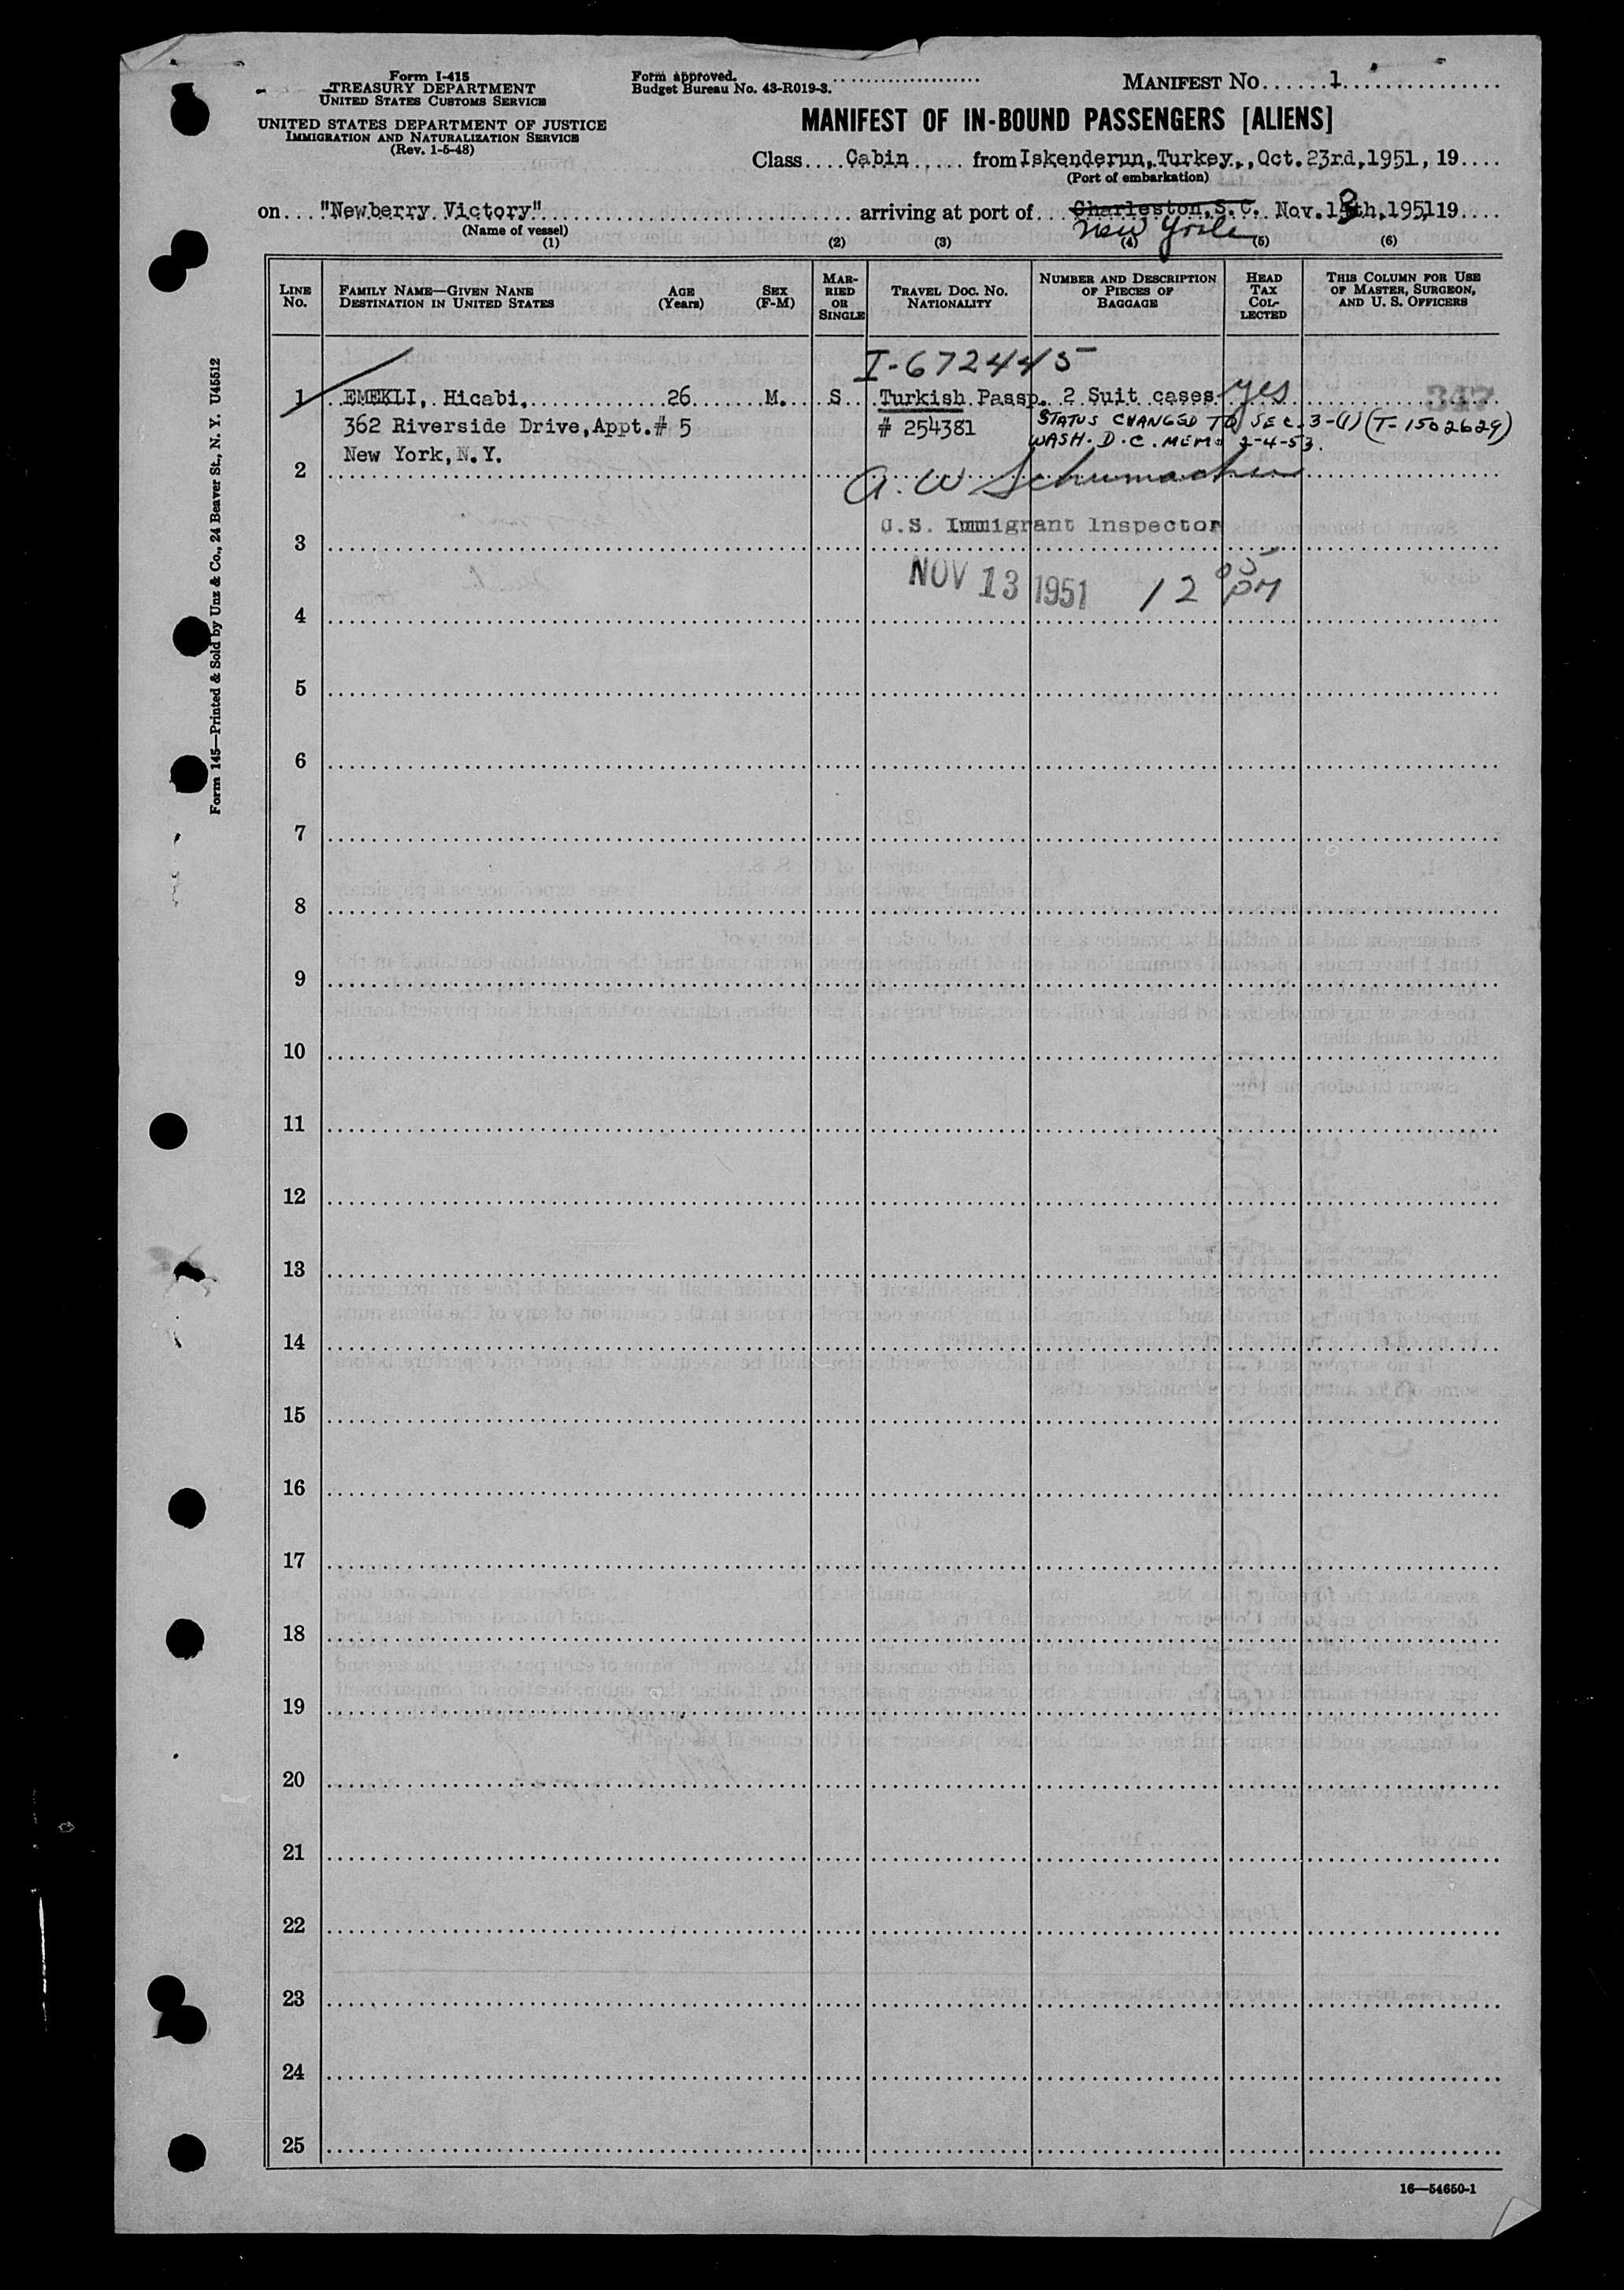 Form I-415
TREASURY DEPARTMENT
UNITED STATES CUSTOMS SERVICE
UNITED STATES DEPARTMENT OF JUSTICE
IMMIGRATION AND NATURALIZATION SERVICE
(Rev. 1-5-48)
Form approved.
Budget Bureau No. 43-R019-3.
MANIFEST NO. 1
MANIFEST OF IN-BOUND PASSENGERS [ALIENS]
Class Cabin from Iskenderun, Turkey., Oct. 23rd, 1951, 19
(Port of embarkation)
on "Newberry Victory" arriving at port of Charleston, S.C. Nov. 13th, 1951 19
(Name of vessel)
New York
(1) (2) (3) (4) (5) (6)
LINE NO.
FAMILY NAME—GIVEN NANE
DESTINATION IN UNITED STATES
AGE (Years)
SEX (F-M)
MARRIED OR SINGLE
TRAVEL DOC. NO.
NATIONALITY
NUMBER AND DESCRIPTION
OF PIECES OF
BAGGAGE
HEAD TAX COLLECTED
THIS COLUMN FOR USE
OF MASTER, SURGEON,
AND U. S. OFFICERS
I-672445
1 EMEKLI, Hicabi, 26 M. S Turkish Passp. 2 Suit cases yes 347
362 Riverside Drive, Appt.# 5 # 254381 STATUS CHANGED TO SEC. 3-(1) (T-1502629)
WASH. D.C. MEMO 2-4-53.
New York, N.Y.
2 A. W Schumacher
3 U.S. Immigrant Inspector
NOV 13 1951 12 05 PM
4
5
6
7
8
9
10
11
12
13
14
15
16
17
18
19
20
21
22
23
24
25
16—54650-1
Form 145—Printed & Sold by Unz & Co., 24 Beaver St., N. Y. U45512